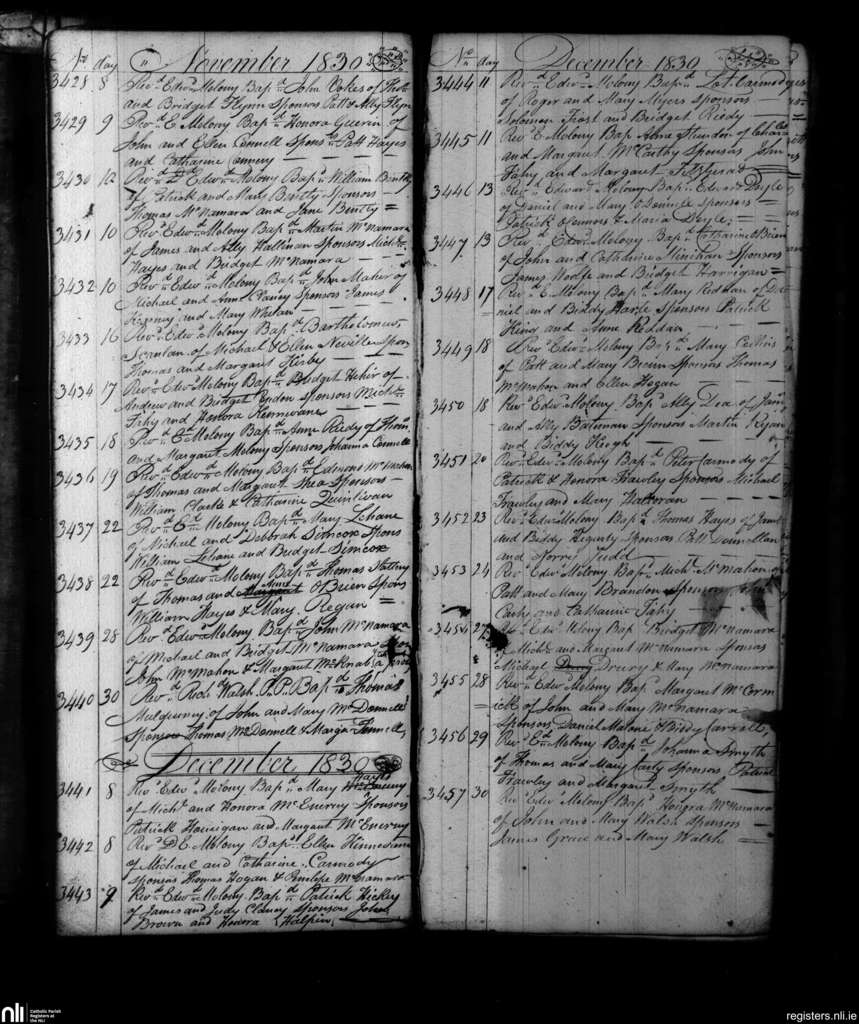 No day " November 1830
3428 8 Revd. Edwd. Molony Bapd. John Vokes of Thos.
and Bridget Flynn Sponsors Patt & Ally Flynn
3429 9 Revd. E Molony Bapd. Honora Guerin of
John and Ellen Connell Sponsrs Patt Hayes
and Catharine Connery
3430 12 Revd. Edwd. Molony Bapd. William Bently
of Patrick and Mary Bently Sponsors
Thomas McNamara and Jane Bently
3431 10 Revd. Edwd. Molony Bapd. Martin McNamara
of James and Ally Hallinan Sponsors Michl.
Hayes and Bridget McNamara
3432 10 Revd. Edwd. Molony Bapd. John Maher of
Michael and Anne Sponsors James
and Mary Whelan
3433 16 Revd. Edwd. Molony Bapd. Bartholomew
Scanlan of Michael & Ellen Neville Spon
Thomas and Margaret Kirby
3434 17 Revd. Edwd. Molony Bapd. Bridget Hehir of
Andrew and Bridget Sponsors Michl.
Fahy and Honora
3435 18 Revd. E. Molony Bapd. Anne Reedy of Thoms.
and Margaret Molony Sponsors Johanna Connell
3436 19 Revd. Edwd. Molony Bapd. Edmond McMahon
of Thomas and Margaret Shea Sponsors
William Clarke & Catharine Quinlivan
3437 22 Revd. Ed. Molony Bapd. Mary Lehane
of Michael and Deborah Simcox Spons
William Lehane and Bridget Simcox
3438 22 Revd. Edwd. Molony Bapd. Thomas Slattery
of Thomas and Margaret Anne OBrien Spons
William Hayes & Mary Regan
3439 28 Revd. Edwd. Molony Bapd. John McNamara
of Michael and Bridget McNamara
John McMahon & Margaret
3440 30 Revd. Walsh P.P. Bapd. Thomas
of John and Mary McDonnell
Sponsors Thomas McDonnell & Margt. Fennell
December 1830
3441 8 Revd. Edwd. Molony Bapd. Mary Hayes
of Michl. and Honora McEnerny Sponsors
Patrick Hannigan and Margaret McEnerny
3442 8 Revd. D E Molony Bapd. Ellen Hinnedane
of Michael and Catharine Carmody
Sponsors Thomas Hogan & Penelope McNamara
3443 9 Revd. Edwd. Molony Bapd. Patrick Hickey
of James and Judy Sponsors John
Brown and Honora Halpin
No day December 1830
3444 11 Revd. Edwd. Molony Bapd. Carmody
of Roger and Mary Myers Sponsors
Solomon Frost and Bridget Reedy
3445 11 Revd. E Molony Bapd. Anne of
and Margaret McCarthy Sponsors John
Fahy and Margaret Fitzgerald
3446 13 Revd. Edward Molony Bapd. Edward Doyle
of Daniel and Mary Sponsors
Patrick OConnors & Maria Doyle
3447 13 Revd. Edwd. Molony Bapd. Catharine OBrien
of John and Catharine Minihan Sponsors
James Woolfe and Bridget Harrigan
3448 17 Revd. E. Molony Bapd. Mary Reddan of Da
niel and Biddy Hartle Sponsors Patrick
King and Anne Reddan
3449 18 Revd. Edwd. Molony Bapd. Mary Collins
of Patt and Mary Sponsors Thomas
McMahon and Ellen Hogan
3450 18 Revd. Edwd. Molony Bapd. Ally Dea of James
and Ally Bateman Sponsors Martin Ryan
and Biddy Keogh
3451 20 Revd. Edwd. Molony Bapd. Peter Carmody of
Patrick & Honora Frawley Sponsors Michael
Frawley and Mary Halloran
3452 23 Revd. Edwd. Molony Bapd. Thomas Hayes of James
and Biddy Sponsors Patt Donnellan
and Judd
3453 24 Revd. Edwd. Molony Bapd. Michl. McMahon of
Patt and Mary Brandon Sponsors
and Catharine Fahy
3454 27 Revd. Edwd. Molony Bapd. Bridget McNamara
of Michl. and Margaret McNamara Sponsors
Michael Drury & Mary McNamara
3455 28 Revd. Edwd. Molony Bapd. Margaret McCorm
ick of John and Mary McNamara
Sponsors Daniel Malone & Biddy Carroll
3456 29 Revd. Ed. Molony Bapd. Johanna Smyth
of Thomas and Mary Sponsors Patrick
Frawley and Margaret Smyth
3457 30 Revd. Edwd. Molony Bapd. Honora McNamara
of John and Mary Walsh Sponsors
James Grace and Mary Walsh
nli Catholic Parish
Registers at
the NLI
registers.nli.ie